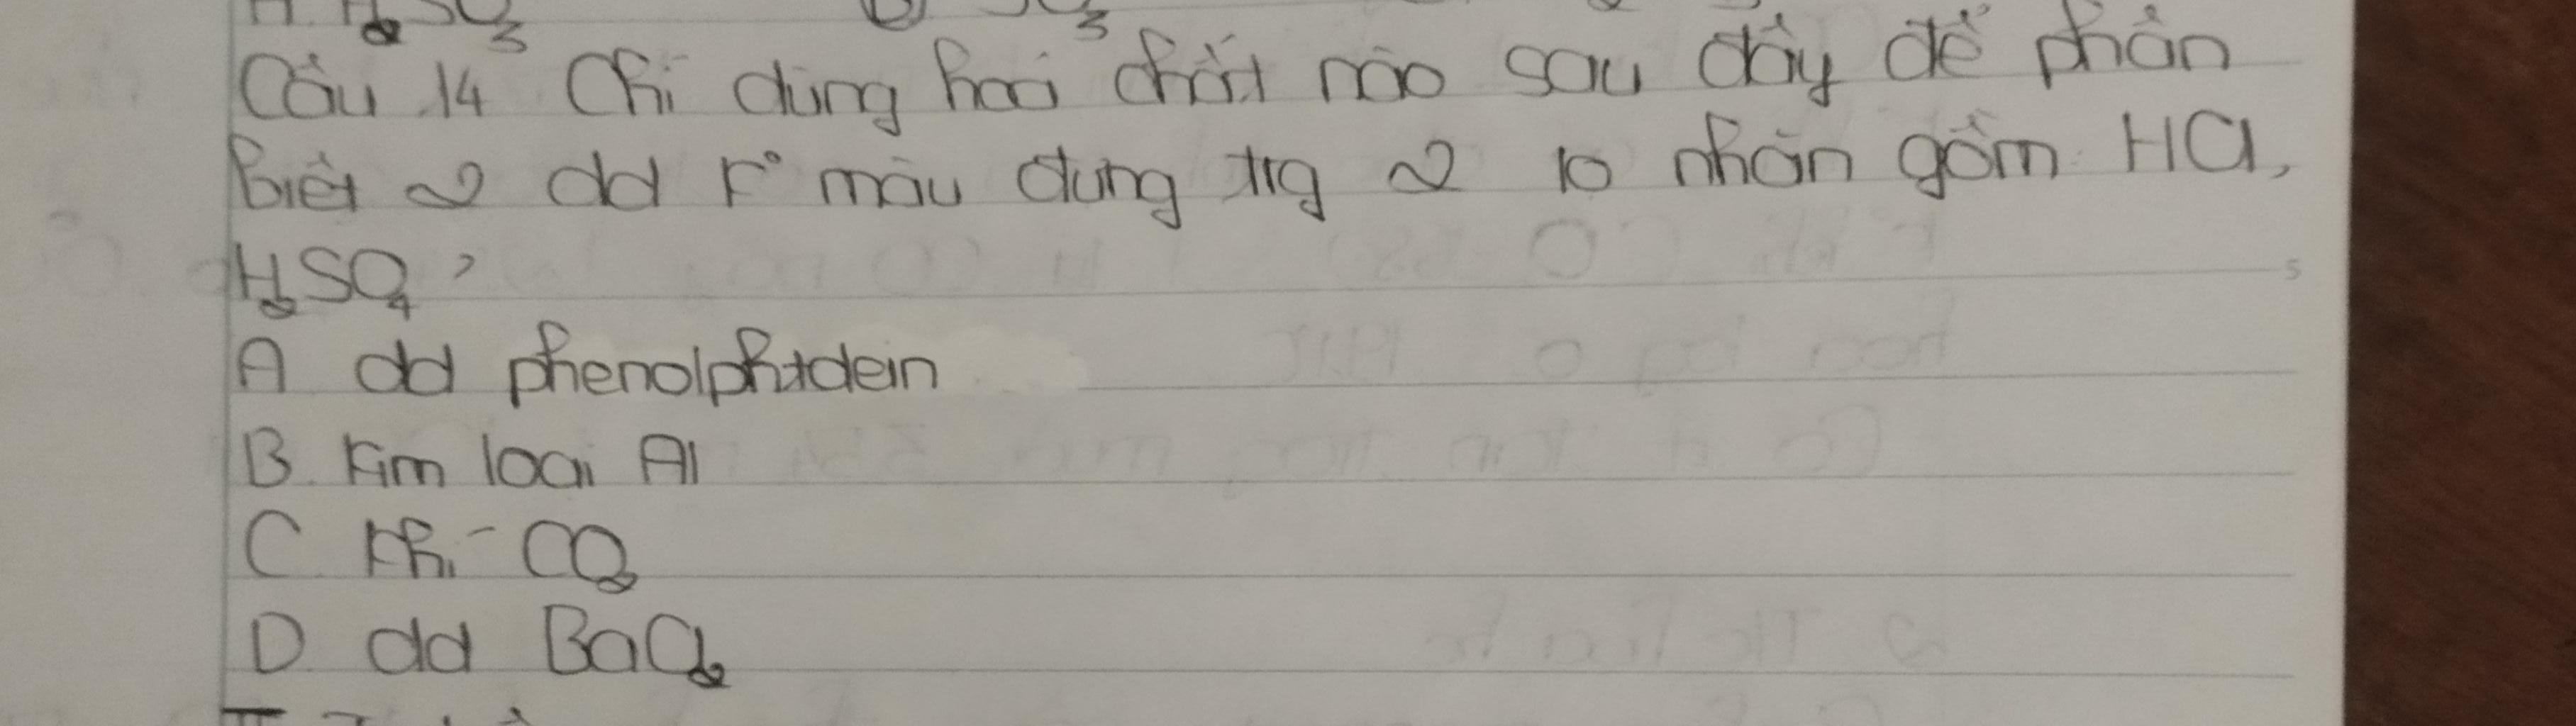 Câu 14 Chỉ dùng hoá chất nào sau đây để phân
biệt 2 dd ko màu đựng trg 2 lọ nhãn gồm HCl,
H2SO4?
A dd phenolphtalein
B. Kim loại Al
C Khí CO2
D dd BaCl2